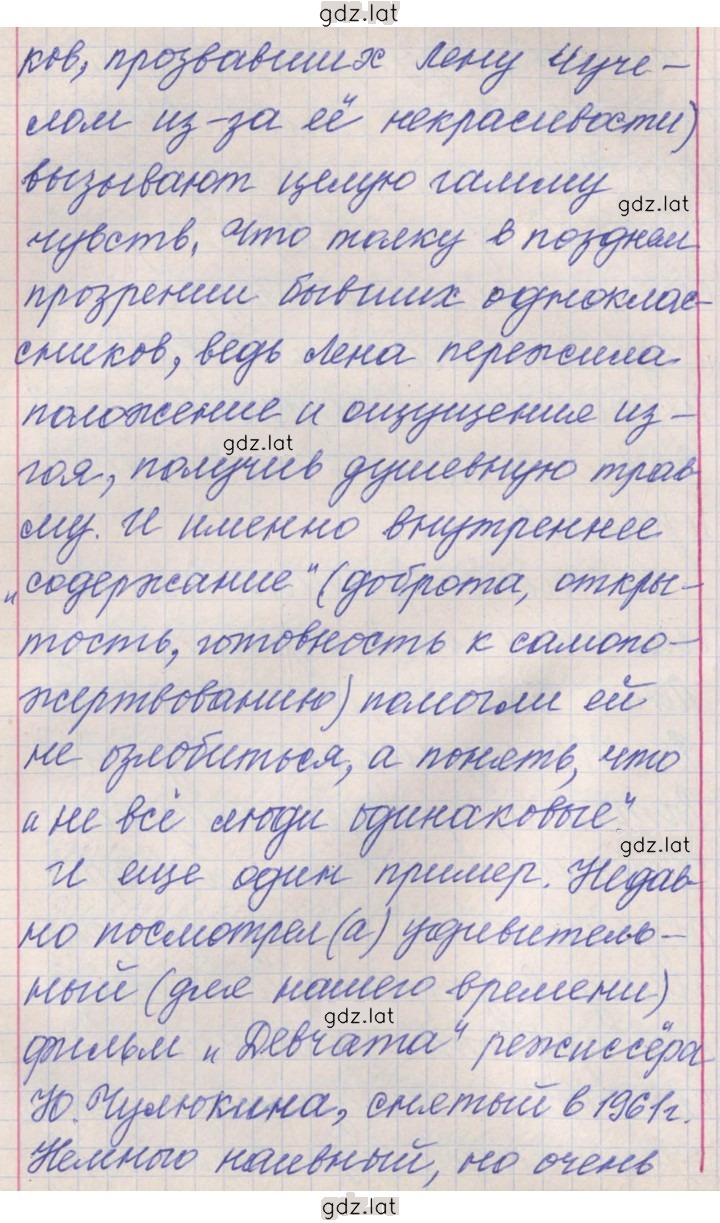 gdz.lat
ков, прозвавших Лену Чуче-
лом из-за её некрасивости)
вызывают целую гамму
gdz.lat
чувств. Что толку в позднем
прозрении бывших однокла-
сников, ведь Лена пережила
положение и ощущения из-
gdz.lat
гоя, получив душевную трав
му. И именно внутреннее
„содержание" (доброта, откры-
тость, готовность к самопо-
жертвованию) помогли ей
не озлобиться, а понять, что
„не всё люди одинаковые"
gdz.lat
И еще один пример. Недав
но посмотрел(а) удивитель-
ный (для нашего времени)
gdz.lat
фильм „Девчата" режиссёра
Ю. Чулюкина, снятый в 1961г.
Немного наивный, но очень
gdz.lat